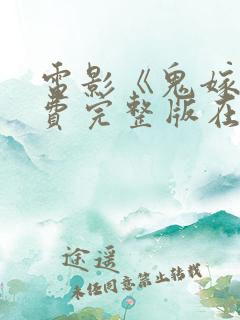 電影《鬼嫁
費完整版在
途遥
未经同意禁止转载